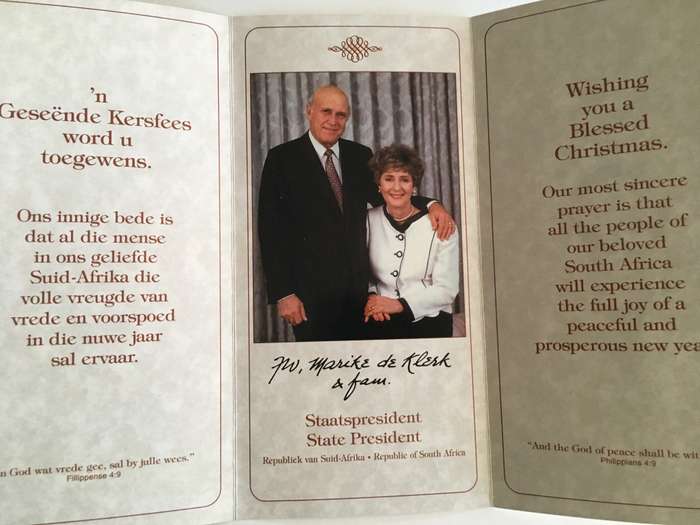 'n
Geseënde Kersfees
word u
toegewens.
Ons innige bede is
dat al die mense
in ons geliefde
Suid-Afrika die
volle vreugde van
vrede en voorspoed
in die nuwe jaar
sal ervaar.
God wat vrede gee, sal by julle wees."
Fillippense 4:9
FW, Marike de Klerk
& fam.
Staatspresident
State President
Republiek van Suid-Afrika • Republic of South Africa
Wishing
you a
Blessed
Christmas.
Our most sincere
prayer is that
all the people of
our beloved
South Africa
will experience
the full joy of a
peaceful and
prosperous new
"And the God of peace shall be
Philippians 4:9